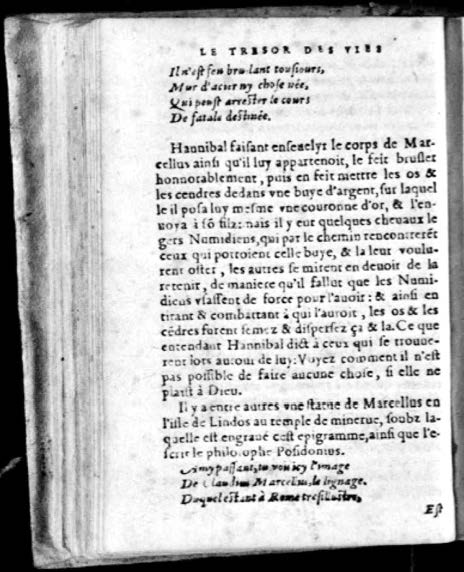 LE TRESOR DES VIES
Il n'est feu brulant tousiours,
Mur d'acier ny chose née,
Qui peust arrester le cours
De fatale destinée.
Hannibal faisant enseuelyr le corps de Mar-
cellus ainsi qu'il luy appartenoit, le feit brusler
honnorablement, puis en feit mettre les os &
les cendres dedans vne buye d'argent, sur laquel
le il posa luy mesme vne couronne d'or, & l'en-
uoya à sõ filz: mais il y eut quelques cheuaux le
gers Numidiens, qui par le chemin rencontrerẽt
ceux qui portoient celle buye, & la leur voulu-
rent oster, les autres se mirent en deuoir de la
retenir, de maniere qu'il fallut que les Numi-
diens vsassent de force pour l'auoir: & ainsi en
tirant & combattant à qui l'auroit, les os & les
cẽdres furent semez & dispersez ça & la. Ce que
entendant Hannibal dict à ceux qui se trouue-
rent lors autour de luy: Voyez comment il n'est
pas possible de faire aucune chose, si elle ne
plaist à Dieu.
Il y a entre autres vne statue de Marcellus en
l'isle de Lindos au temple de minerue, soubz la-
quelle est engraué cest epigramme, ainsi que l'e-
scrit le philosophe Posidonius.
Amy passant, tu vois icy l'image
De Claudius Marcellus, le lignage
Duquel estant à Rome tresillustre,
Est